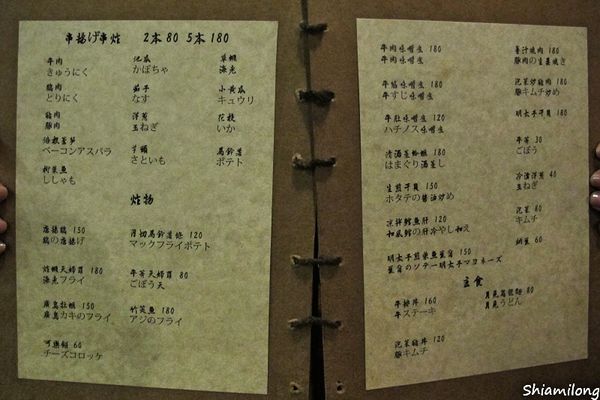 串揚げ串炸 2本80 5本180
牛肉
きゅうにく
鶏肉
とりにく
豬肉
豚肉
培根蘆筍
ベーコンアスパラ
柳葉魚
ししゃも
地瓜
かぼちゃ
茄子
なす
洋蔥
玉ねぎ
芋頭
さといも
草蝦
海老
小黃瓜
キュウリ
花枝
いか
馬鈴薯
ポテト
炸物
唐揚鶏 150
鶏の唐揚げ
炸蝦天婦羅 180
海老フライ
廣島牡蠣 150
廣島カキのフライ
可樂餅 60
チーズコロッケ
月切馬鈴薯條 120
マックフライポテト
牛蒡天婦羅 80
ごぼう天
竹筴魚 180
アジのフライ
牛肉味噌煮 180
牛肉味噌煮
牛筋味噌煮 180
牛すじ味噌煮
牛肚味噌煮 120
ハチノス味噌煮
清酒蒸蛤蠣 180
はまぐり酒蒸し
生煎干貝 150
ホタテの醤油炒め
涼拌鱈魚肝 120
和風鱈の肝冷やし和え
明太子煎柴魚雪苔 150
薑汁燒肉 180
豚肉の生姜焼き
泡菜炒豬肉 180
豚キムチ炒め
明太子干貝 180
牛蒡 30
ごぼう
冷漬洋蔥 40
玉ねぎ
泡菜 80
キムチ
納豆 60
主食
牛排丼 160
牛ステーキ
泡菜豬丼 120
豚キムチ
月見烏龍麵 80
月見うどん
Shiamilong